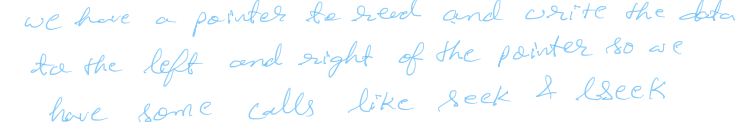 we have a pointer to read and write the data
to the left and right of the pointer so we
have some calls like seek & lseek